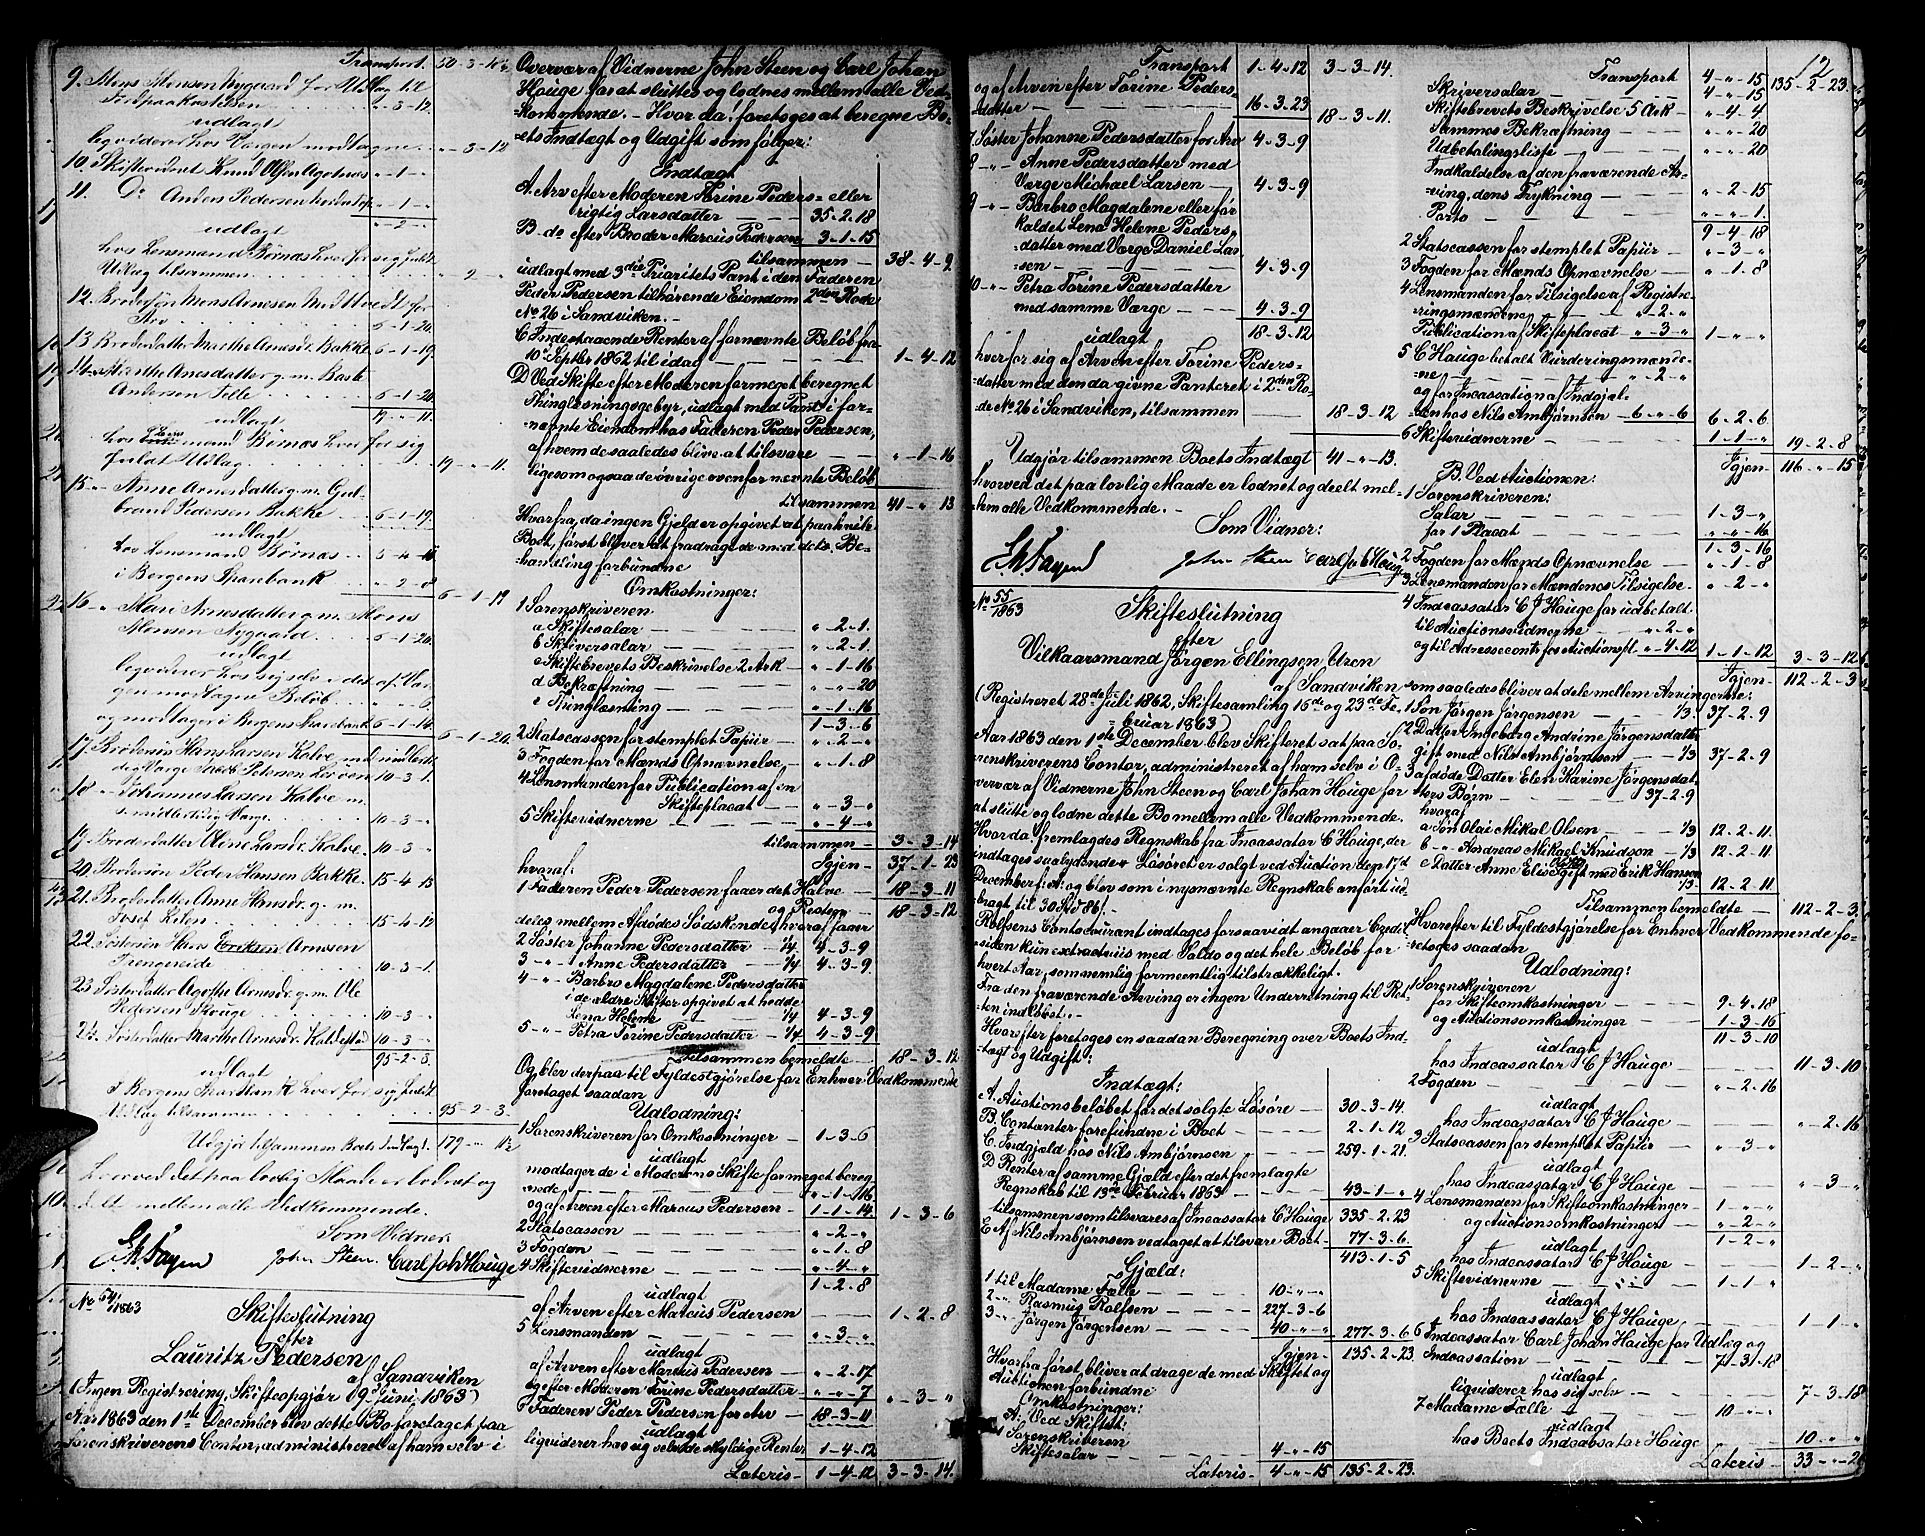 Transport. 50-3-
9. Mons Monsen Nygaard for Udlæg til
Jordpaakastelsen " -3-12.
udlagt
liqviderer hos Værgen modtagne " -3-12
10. Skiftevidnet Knud Olsen Agotnes " -1- "
11. Do Anders Pedersen " -1- "
" -2- "
udlagt
hos Lensmand Børnæs hver for sig fuldt
Udlæg tilsammen " -2- "
12. Brodersøn Mons Arnesen Midttvedt for
Arv 6-1-20.
13. Broderdatter Marthe Arnesdr. Bakke 6-1-19.
14. Marthe Arnesdatter g. m. Baste
Andersen Telle 6-1-20.
19- " -11.
udlagt
hos Lensmand Børnæs hver for sig
fuldt Udlæg 19- " -11.
15- " Anne Arnesdatter g. m. Gud-
brand Pedersen Bakke 6-1-19.
udlagt
hos Lensmand Børnæs 5-4-
i Bergens Sparebank " -2-8
6-1-19
16- " Mari Arnesdatter g. m. Mons
Monsen Nygaard 6-1-20.
udlagt
liqviderer hos sig selv i det af Vær-
gen modtagne Beløb " - " -6.
og modtager i Bergens Sparebank 6-1-14.
6-1-20.
17. Brodersøn Hans Larsen Kalve med midlerti-
dig Værge Jacob Petersen Lerøen 10-3-1.
18- " Johannes Larsen Kalve m.
s. midlertidig Værge 10-3- "
19. Broderdatter Oline Larsdr. Kalve. 10-3- "
20. Brodersøn Peder Hansen Bakke. 15-4-13
21. Broderdatter Anne Hansdr. g. m.
Josef 15-4-12
22. Søstersøn Hans Eriksen Arnesen
Trengereide 10-3-1.
23. Søsterdatter Agothe Arnesdr. g. m. Ole
Pedersen Skouge 10-3- "
24. Søsterdatter Marthe Arnesdr. Kaldestad 10-3- "
95-2-3.
udlagt
i Bergens Sparebank hver for sig fuldt
Udlæg tilsammen 95-2-3.
Udgjør tilsammen Boets Indtægt. 179- " -
hvorved det paa lovlig Maade er lodnet og
delt mellem alle Vedkommende.
Som Vidner.
John Steen. Carl Joh Houge
No 54/1863
Skifteslutning
efter
Lauritz Pedersen
af Sandviken
(Ingen Registrering, Skifteopgjør 9 Juni 1863)
Aar 1863 den 1ste December blev dette Bo foretaget paa
Sorenskriverens Contor, administreret af ham selv i
Overvær af Vidnerne John Steen og Carl Johan
Houge for at sluttes og lodnes mellem alle Ved-
kommende. - Hvor da: foretoges at beregne Bo-
ets Indtægt og Udgift som følger:
Indtægt
A. Arv efter Moderen Torine Peders- eller
rigtig Larsdatter 35-2-18
B. do efter Broder Marcus Pedersen 3-1-15
tilsammen 38-4-9.
udlagt med 3die Prioritets Pant i den Faderen
Peder Pedersen tilhørende Eiendom 2den Rode
No 26 i Sandviken. -
C Indestaaende Renter af fornævnte Beløb fra
10de Septbr 1862 til idag 1-4-12
D Ved Skifte efter Moderen formeget beregnet
Thinglæsningsgebyr, udlagt med Pant i for-
nævnte Eiendom hos Faderen Peder Pedersen,
af hvem de saaledes blive at tilsvare " -1-16
ligesom ogsaa de øvrige ovenfor nævnte Beløb
tilsammen 41- " -13
Hvorfra, da ingen Gjeld er opgivet at paahvile
Boet, først bliver at fradrage de med dets Be-
handling forbundne
Omkostninger:
1 Sorenskriveren
a Skiftesalær " -2-1.
b Skriversalær " -2-1.
c Skiftebrevets Beskrivelse 2 Ark " -1-16
d Bekræftning " - " -20
e Thinglæsning " -1-16
1-3-6
2 Statscassen for stemplet Papiir " -2- "
3 Fogden for Mænds Opnævnelse, " -1-8
4 Lensmanden for Publication af en
Skifteplacat " -3- "
5 Skiftevidnerne " -4- "
tilsammen 3-3-14
Igjen 37-1-23
hvoraf:
1 Faderen Peder Pedersen faaer det Halve 18-3-11
og Resten 18-3-12
deles mellem Afdødes Sødskende, hvoraf faaer
2 Søster Johanne Pedersdatter 1/4 4-3-9
3- " Anne Pedersdatter 1/4 4-3-9.
4- " Barbro Magdalene Pedersdatter
i de ældre Skifter opgivet at hedde
Lena Helene 1/4 4-3-9
5- " Petra Torine Pedersdatter 1/4 4-3-9
Tilsammen bemeldte 18-3-12
Og blev derpaa til Fyldestgjørelse for Enhver Vedkommende
foretaget saadan
Udlodning:
1 Sorenskriveren for Omkostninger 1-3-6
udlagt
modtager de i Moderens Skifte formeget bereg-
nede " -1-16
og af Arven efter Marcus Pedersen 1-1-14
1-3-6
2 Statscassen " -2- "
3 Fogden " -1-8
4 Skiftevidnerne " -4- "
1-2-8
udlagt
af Arven efter Marcus Pedersen 1-2-8
5 Lensmanden " -3- "
udlagt
af Arven efter Marcus Pedersen " -2-17
og efter Moderen Torine Pedersdatter " - " -7
" -3- "
6 Faderen Peder Pedersen for Arv 18-3-11
udlagt
liqviderer hos sig selv de skyldige Renter 1-4-12
Lateris 1-4-12 3-3-14.
Transport 1-4-12 3-3-14.
og af Arven efter Torine Peders-
datter 16-3-23 18-3-11.
7 Søster Johanne Pedersdatter for Arv 4-3-9
8 - " - Anne Pedersdatter med
Værge Michael Larsen 4-3-9
9 - " - Barbro Magdalene eller før
kaldet Lena Helene Peders-
datter med Værge Daniel Lar-
sen 4-3-9
10 - " - Petra Torine Pedersdatter
med samme Værge 4-3-9
18-3-12
udlagt
hver for sig af Arven efter Torine Peders-
datter med den da givne Panteret i 2den Ro-
de No 26 i Sandviken, tilsammen 18-3-12
Udgjør tilsammen Boets Indtægt 41- " -13.
hvorved det paa lovlig Maade er lodnet og deelt mel-
lem alle Vedkommende. -
Som Vidner:
John Steen Carl Joh Houge
No 55/1863
Skifteslutning
efter
Vilkaarsmand Jørgen Ellingsen Uren
af Sandviken
(Registreret 28de Juli 1862, Skiftesamling 16de og 23de Fe-
bruar 1863)
Aar 1863 den 1ste December blev Skifteret sat paa So-
renskriverens Contor, administreret af ham selv i O-
vervær af Vidnerne John Steen og Carl Johan Houge for
at slutte og lodne dette Bo mellem alle Vedkommende.
Hvor da: fremlagdes Regnskab fra Incassator C Houge, der
indtages saalydende. Løsøret er solgt ved Auction den 17de
December f: A: og blev som i nysnævnte Regnskab anført ud-
bragt til 30 Spd 86 s.
Rolfsens Contocurant indtages forsaavidt angaaer Credit-
siden kun extractviis med Saldo og det hele Beløb for
hvert Aar, som nemlig formeentlig tilstrækkeligt.
Fra den fraværende Arving er ingen Underretning til Ret-
ten indløbet. -
Hvorefter foretoges en saadan Beregning over Boets Ind-
tægt og Udgift:
Indtægt:
A. Auctionsbeløbet for det solgte Løsøre 30-3-14.
B. Contanter forefundne i Boet 2-1-12
C. Indgjeld hos Nils Ambjørnsen 259-1-21.
D Renter af samme Gjæld efter det fremlagte
Regnskab til 13de Februar 1863 43-1- "
tilsammen som tilsvares af Incassator C Houge 335-2-23
E Af Nils Ambjørnsen vedtaget at tilsvare Boet 77-3-6
413-1-5
Gjæld:
1 til Madame Fælle 10- " - "
2- " Rasmus Rolfsen 227-3-6
3- " Jørgen Jørgensen 40- " - "
277-3-6
Igjen 135-2-23.
Hvorfra først bliver at drage de med Skiftet og
Auctionen forbundne
Omkostninger:
A. Ved Skiftet:
Sorenskriveren
Skiftesalær 4- " -15
Lateris 4- " -15 135-2-23.
12
Transport 4- " -15 135-2-23.
Skriversalær 4- " -15
Skiftebrevets Beskrivelse 5 Ark " -4-4
Sammes Bekræftning " - " -20
Udbetalingsliste " - " -20
Indkaldelse af den fraværende Ar-
ving, dens Trykning " -2-15
Porto " - " -1.
9-4-18
2 Statscassen for stemplet Papiir " -3- "
3 Fogden for Mænds Opnævnelse " -1-8
4 Lensmanden for Tilsigelse af Registre-
ringsmændene " -2- "
Publication af Skifteplacat " -3- " 1- " - "
5 C Houge betalt Vurderingsmænde-
ne " -2- "
og for Incassation af Indgjæl-
den hos Nils Ambjørnsen 6- " -6 6-2-6
6 Skiftevidnerne 1-1- " 19-2-8
Igjen 116- " -15
B. Ved Auctionen:
1 Sorenskriveren:
Salær 1-3- "
for 1 Placat " - " -16
1-3-16
2 Fogden for Mænds Opnævnelse " -1-8
3 Lensmanden for Mændenes Tilsigelse " -2- "
4 Incassator C J Houge for udbetalt
til Auctionsvidnerne " -2- "
og til Adressecont. for Auctionspl. " -4-12 1-1-12 3-3-12
Igjen 112-2-3
som saaledes bliver at dele mellem Arvingerne:
1 Søn Jørgen Jørgensen 1/3. 37-2-9
2 Datter Ingeborg Andrine Jørgensdatter
gift med Nils Ambjørnsen 1/3 37-2-9
3 afdøde Datter Elen Karine Jørgensdat-
ters Børn 37-2-9
hvoraf
a Søn Olai Mikal Olsen 1/3 12-2-11.
b - " Andreas Mikael Knudson 1/3 12-2-11
c Datter Anne Elise gift med Erik Hansen
1/3 12-2-11.
Tilsammen bemeldte 112-2-3.
Hvorefter til Fyldestgjørelse for Enhver Vedkommende fo-
retoges saadan
Udlodning:
1 Sorenskriveren
for Skifteomkostninger 9-4-18
og Auctionsomkostninger 1-3-16
11-3-10
udlagt
hos Incassator C J Houge 11-3-10
2 Fogden " -2-16
udlagt
hos Incassator C J Houge " -2-16
3 Statscassen for stemplet Papiir " -3- "
udlagt
hos Incassator C J Houge " -3- "
4 Lensmanden for Skifteomkostninger 1- " - "
og Auctionsomkostninger " -2- "
1-2- "
udlagt
hos Incassator C J Houge 1-2- "
5 Skiftevidnerne 1-1- "
udlagt
hos Incassator C J Houge 1-1- "
6 Incassator Carl Johan Houge for Udlæg og
Incassation 7-3-18
liqviderer hos sig selv 7-3-18
7 Madame Fælle 10- " - "
udlagt
hos Boets Incassator Houge 10- " - "
Lateris 33- " -2